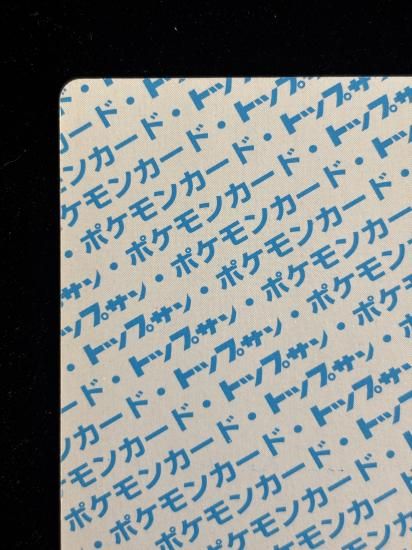 ド・
カード・ト
ンカード・トップ
モンカード・トップサ
ケモンカード・トップサン
・ポケモンカード・トップサ
ン・ポケモンカード・トップ
サン・ポケモンカード・
プサン・ポケモンカード
トップサン・ポケモンカー
・トップサン・ポケモン
ド・トップサン・ポケ
カード・トップサン・ポ
ンカード・トップサン・
モンカード・トップサン
ポケモンカード・トップ
・ポケモンカード・
ポケモンカード
ポケモン